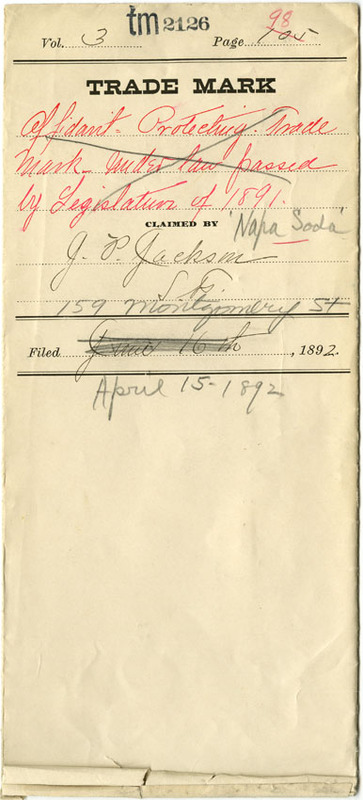 98
tm 2126
Vol. 3 Page 105
TRADE MARK
Affidavit - Protecting Trade
Mark - under law passed
by Legislature of 1891.
CLAIMED BY 'Napa Soda'
J. P. Jackson
S F.
159 Montgomery St
Filed June 16th, 1892.
April 15 - 1892